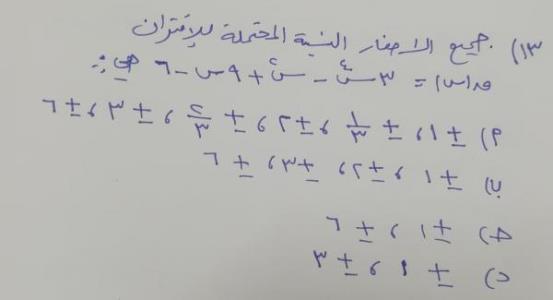 ١٣) جميع الاصفار النسبية المحتملة للإقتران
ق(س) = ٣س٤ - س٢ + ٩س - ٦ هي:
أ) ± ١ ، ± ١/٣ ، ± ٢ ، ± ٢/٣ ، ± ٣ ، ± ٦
ب) ± ١ ، ± ٢ ، ± ٣ ، ± ٦
ج) ± ١ ، ± ٦
د) ± ١ ، ± ٣